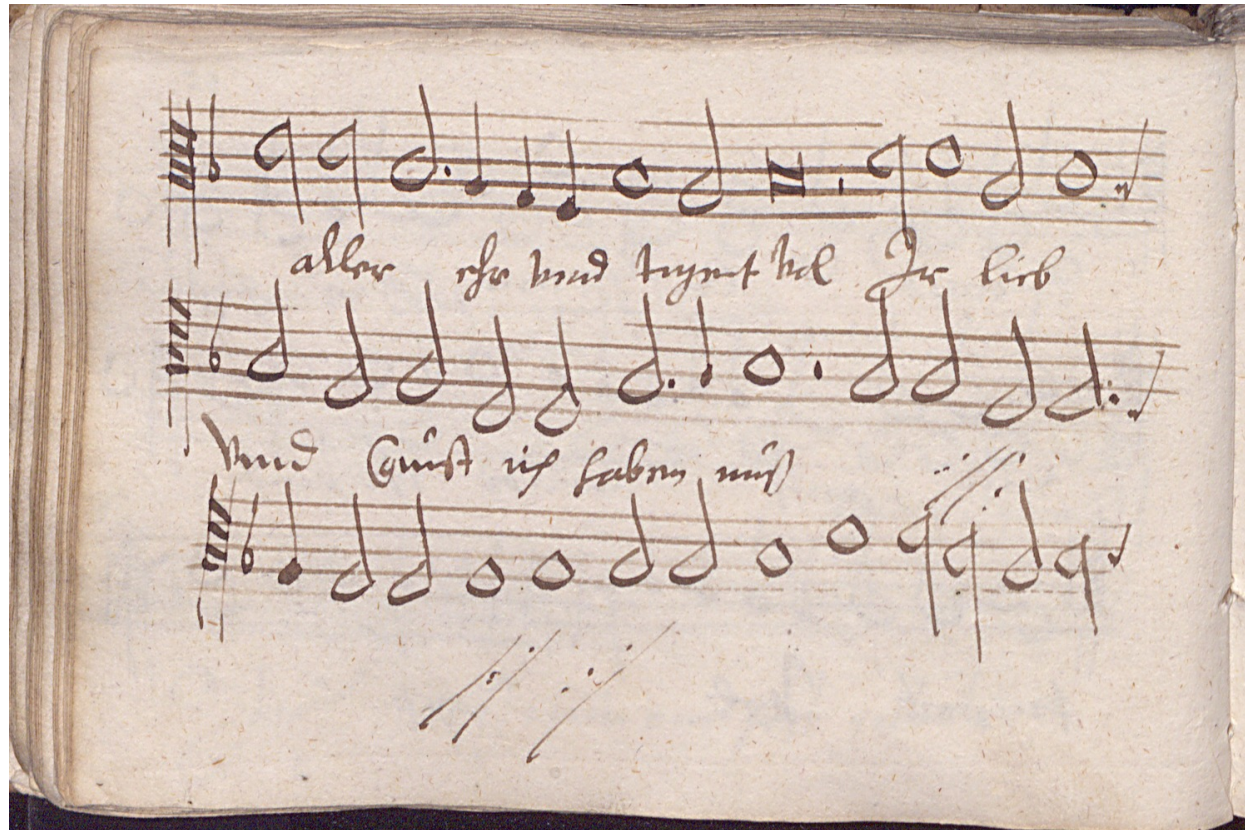 aller ehr vnnd tugent vol Ir lieb
vnnd Gunst ich haben mus